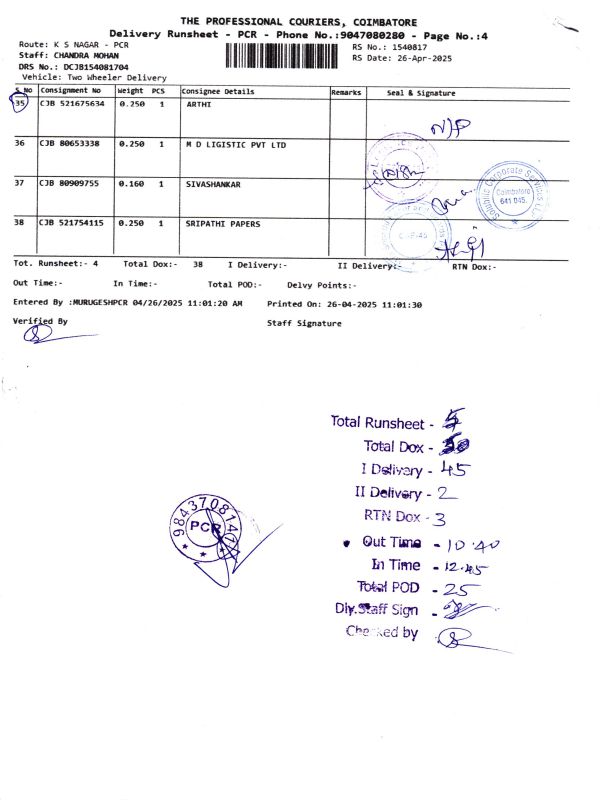 THE PROFESSIONAL COURIERS, COIMBATORE
Delivery Runsheet - PCR - Phone No.:9047080280 - Page No.:4
Route: K S NAGAR - PCR
RS No.: 1540817
Staff: CHANDRA MOHAN
RS Date: 26-Apr-2025
DRS No.: DCJB154081704
Vehicle: Two Wheeler Delivery
S No Consignment No Weight PCS Consignee Details Remarks Seal & Signature
35 CJB 521675634 0.250 1 ARTHI
N/P
36 CJB 80653338 0.250 1 M D LIGISTIC PVT LTD
37 CJB 80909755 0.160 1 SIVASHANKAR
Corporate Services
Coimbatore
641 045.
38 CJB 521754115 0.250 1 SRIPATHI PAPERS
Tot. Runsheet:- 4 Total Dox:- 38 I Delivery:- II Delivery:- RTN Dox:-
Out Time:- In Time:- Total POD:- Delvy Points:-
Entered By :MURUGESHPCR 04/26/2025 11:01:20 AM Printed On: 26-04-2025 11:01:30
Verified By
Staff Signature
Total Runsheet -
Total Dox -
I Delivery - 45
II Delivery - 2
RTN Dox - 3
Out Time - 10.40
In Time - 12.45
Total POD - 25
Dly.Staff Sign -
Checked by
PCR